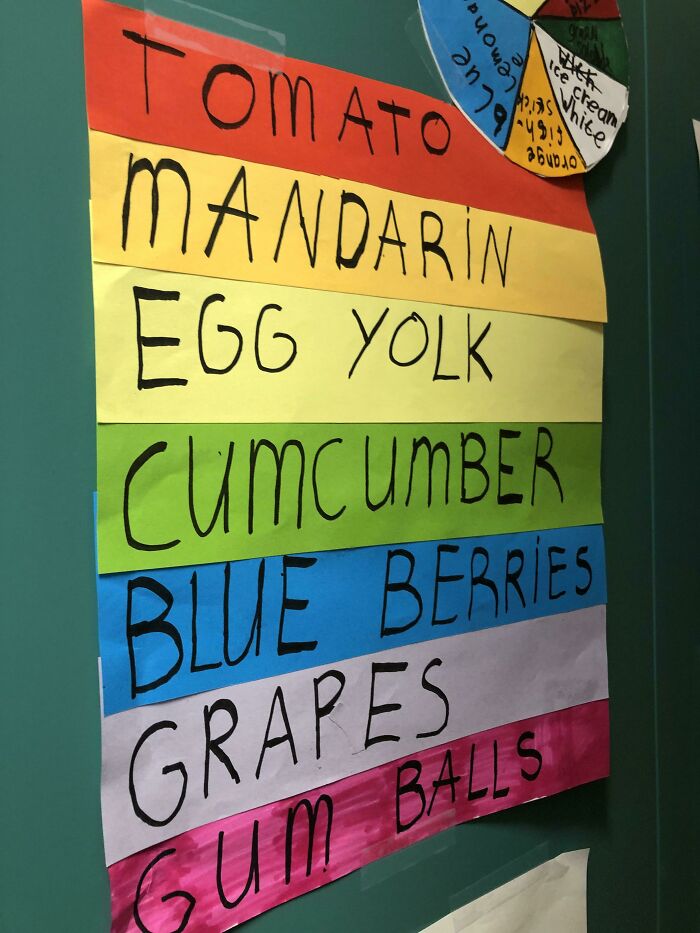 TOMATO
MANDARiN
EGG YOLK
CUMCUMBER
BLUE BERRiES
GRAPES
GUM BALLS
blue
orange
fish-
sticks
ice cream
White